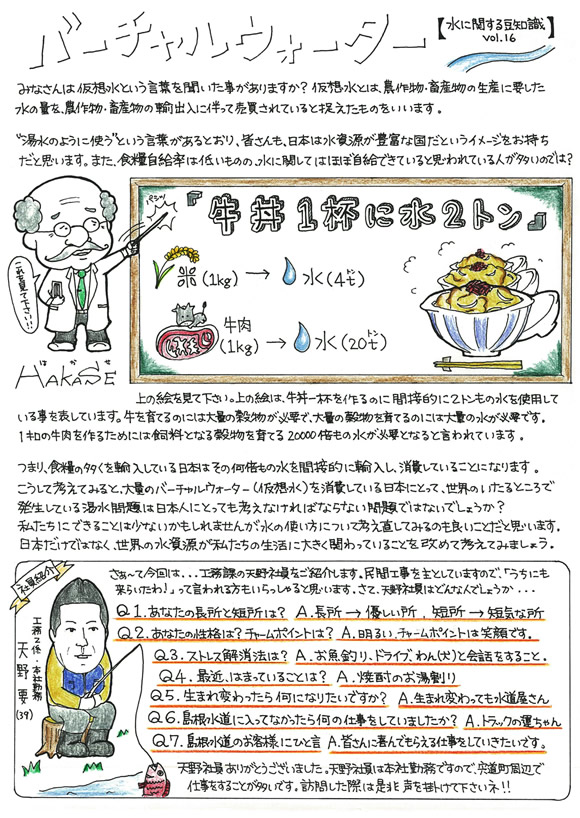 バーチャルウォーター
【水に関する豆知識】
vol.16
みなさんは仮想水という言葉を聞いた事がありますか？仮想水とは、農作物・畜産物の生産に要した
水の量を、農作物・畜産物の輸出入に伴って売買されていると捉えたものをいいます。
"湯水のように使う"という言葉があるとおり、皆さんも、日本は水資源が豊富な国だというイメージをお持ち
だと思います。また、食糧自給率は低いものの、水に関してはほぼ自給できていると思われている人が多いのでは？
パシッ
これを見て下さい！！
はかせ
HAKASE
『牛丼1杯に水2トン』
米(1kg) → 水(4トン)
牛肉
(1kg) → 水(20トン)
上の絵を見て下さい。上の絵は、牛丼一杯を作るのに間接的に2トンもの水を使用して
いる事を表しています。牛を育てるのには大量の穀物が必要で、大量の穀物を育てるのには大量の水が必要です。
1キロの牛肉を作るためには飼料となる穀物を育てる20000倍もの水が必要となると言われています。
つまり、食糧の多くを輸入している日本はその何倍もの水を間接的に輸入し、消費していることになります。
こうして考えてみると、大量のバーチャルウォーター(仮想水)を消費している日本にとって、世界のいたるところで
発生している湯水問題は日本人にとっても考えなければならない問題ではないでしょうか？
私たちにできることは少ないかもしれませんが水の使い方について考え直してみるのも良いことだと思います。
日本だけではなく、世界の水資源が私たちの生活に大きく関わっていることを改めて考えてみましょう。
社員紹介
工務2係・本社勤務
天野要
(39)
さぁ〜て今回は・・・工務課の天野社員をご紹介します。民間工事を主としていますので、「うちにも
来らいたわ！」って言われる方もいらっしゃると思います。さて、天野社員はどんなんでしょうか・・・
Q1.あなたの長所と短所は？ A.長所→優しい所，短所→短気な所
Q2.あなたの性格は？チャームポイントは？ A.明るい,チャームポイントは笑顔です。
Q3.ストレス解消法は？ A.お魚釣り、ドライブ、わん(犬)と会話をすること。
Q4.最近、はまっていることは？ A.焼酎のお湯割り
Q5.生まれ変わったら何になりたいですか？ A.生まれ変わっても水道屋さん
Q6.島根水道に入ってなかったら何の仕事をしていましたか？ A.トラックの運ちゃん
Q7.島根水道のお客様にひと言 A.皆さんに喜んでもらえる仕事をしていきたいです。
天野社員ありがとうございました。天野社員は本社勤務ですので、宍道町周辺で
仕事をすることが多いです。訪問した際は是非声を掛けて下さいネ！！